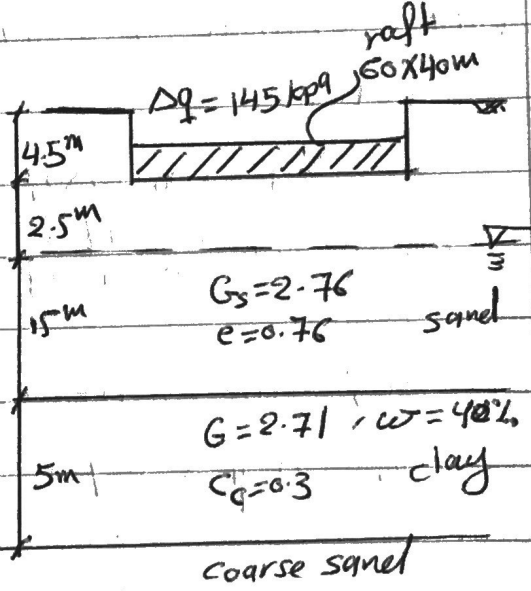 raft
60x40m
Δq = 145 kpa
4.5m
2.5m
Gs=2.76
15m
e=0.76
sand
G=2.71 , ω=40%
5m
Cc=0.3
clay
coarse sand